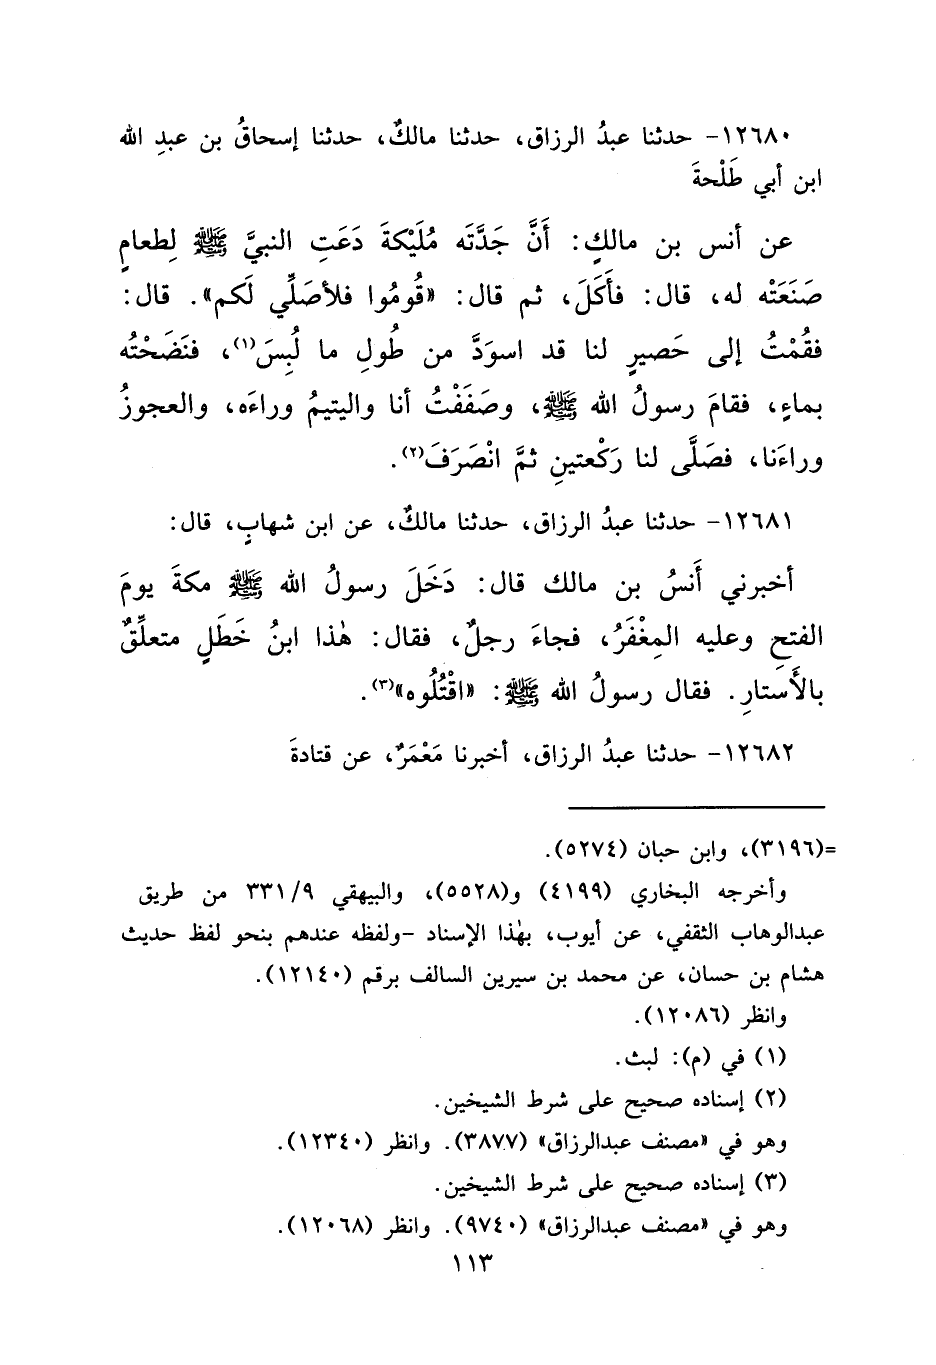 ١٢٦٨٠- حدثنا عبدُ الرزاق، حدثنا مالكٌ، حدثنا إسحاقُ بن عبدِ الله
ابن أبي طَلْحةَ
عن أنس بن مالكٍ: أَنَّ جَدَّتَه مُلَيْكةَ دَعَتِ النبيَّ ﷺ لِطعامٍ
صَنَعَتْه له، قال: فأَكَلَ، ثم قال: «قُومُوا فلأصَلِّي لَكم». قال:
فقُمْتُ إلى حَصيرٍ لنا قد اسوَدَّ من طُولِ ما لُبِسَ(١)، فنَضَحْتُه
بماءٍ، فقامَ رسولُ الله ﷺ، وصَفَفْتُ أنا واليتيمُ وراءَه، والعجوزُ
وراءَنا، فصَلَّى لنا رَكْعتينِ ثمَّ انْصَرَفَ(٢).
١٢٦٨١- حدثنا عبدُ الرزاق، حدثنا مالكٌ، عن ابن شهابٍ، قال:
أخبرني أَنسُ بن مالك قال: دَخَلَ رسولُ الله ﷺ مكةَ يومَ
الفتحِ وعليه المِغْفَرُ، فجاءَ رجلٌ، فقال: هٰذا ابنُ خَطَلٍ متعلِّقٌ
بالأَستارِ. فقال رسولُ الله ﷺ: «اقْتُلُوه»(٣).
١٢٦٨٢- حدثنا عبدُ الرزاق، أخبرنا مَعْمَرٌ، عن قتادةَ
=(٣١٩٦)، وابن حبان (٥٢٧٤).
وأخرجه البخاري (٤١٩٩) و(٥٥٢٨)، والبيهقي ٩/ ٣٣١ من طريق
عبدالوهاب الثقفي، عن أيوب، بهٰذا الإسناد -ولفظه عندهم بنحو لفظ حديث
هشام بن حسان، عن محمد بن سيرين السالف برقم (١٢١٤٠).
وانظر (١٢٠٨٦).
(١) في (م): لبث.
(٢) إسناده صحيح على شرط الشيخين.
وهو في «مصنف عبدالرزاق» (٣٨٧٧). وانظر (١٢٣٤٠).
(٣) إسناده صحيح على شرط الشيخين.
وهو في «مصنف عبدالرزاق» (٩٧٤٠). وانظر (١٢٠٦٨).
١١٣